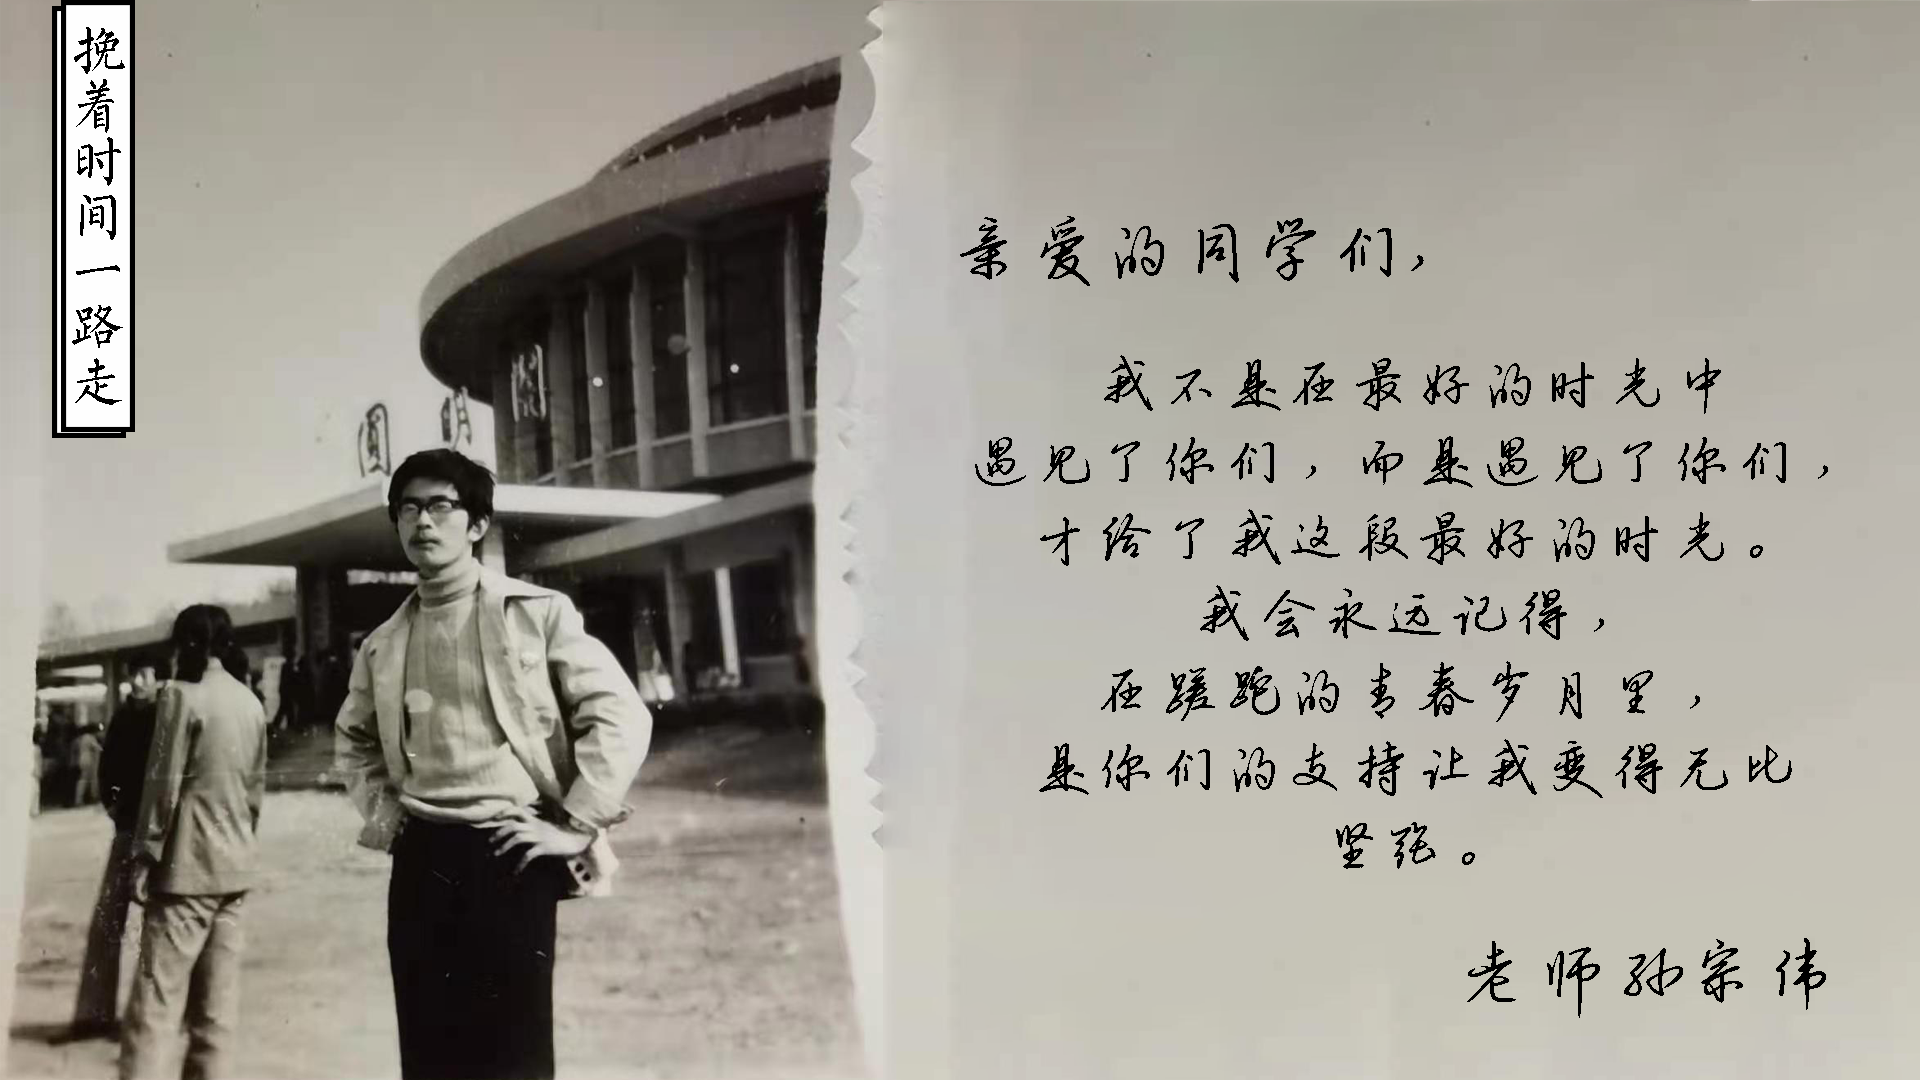 挽着时间一路走
圆明
亲爱的同学们，
我不是在最好的时光中
遇见了你们，而是遇见了你们，
才给了我这段最好的时光。
我会永远记得，
在蹉跎的青春岁月里，
是你们的支持让我变得无比
坚强。
老师孙宗伟